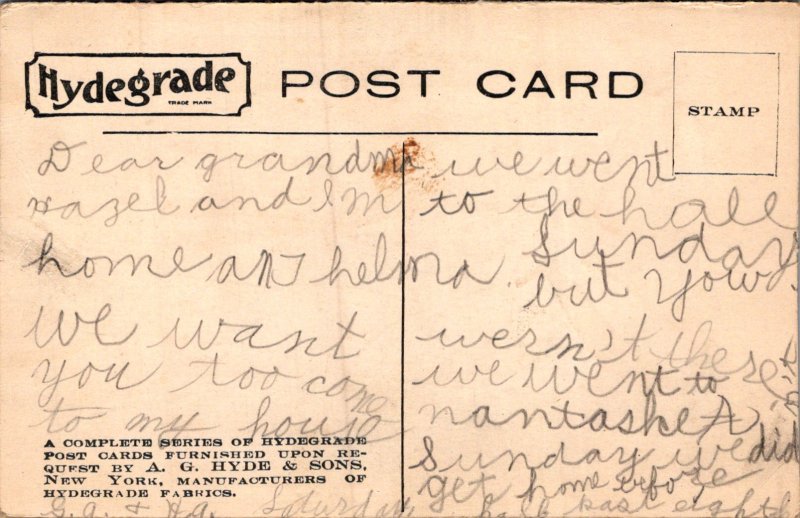 Hydegrade
TRADE MARK
POST CARD
STAMP
Dear grandma
Hazel and I'm
home an Thelma
we want
you too come
to my house
A COMPLETE SERIES OF HYDEGRADE
POST CARDS FURNISHED UPON RE-
QUEST BY A. G. HYDE & SONS,
NEW YORK, MANUFACTURERS OF
HYDEGRADE FABRICS.
we went
to the hall
Sunday
but you
wersn't there
we went to
nantasket
Sunday we did
get home before
Saturday half past eight